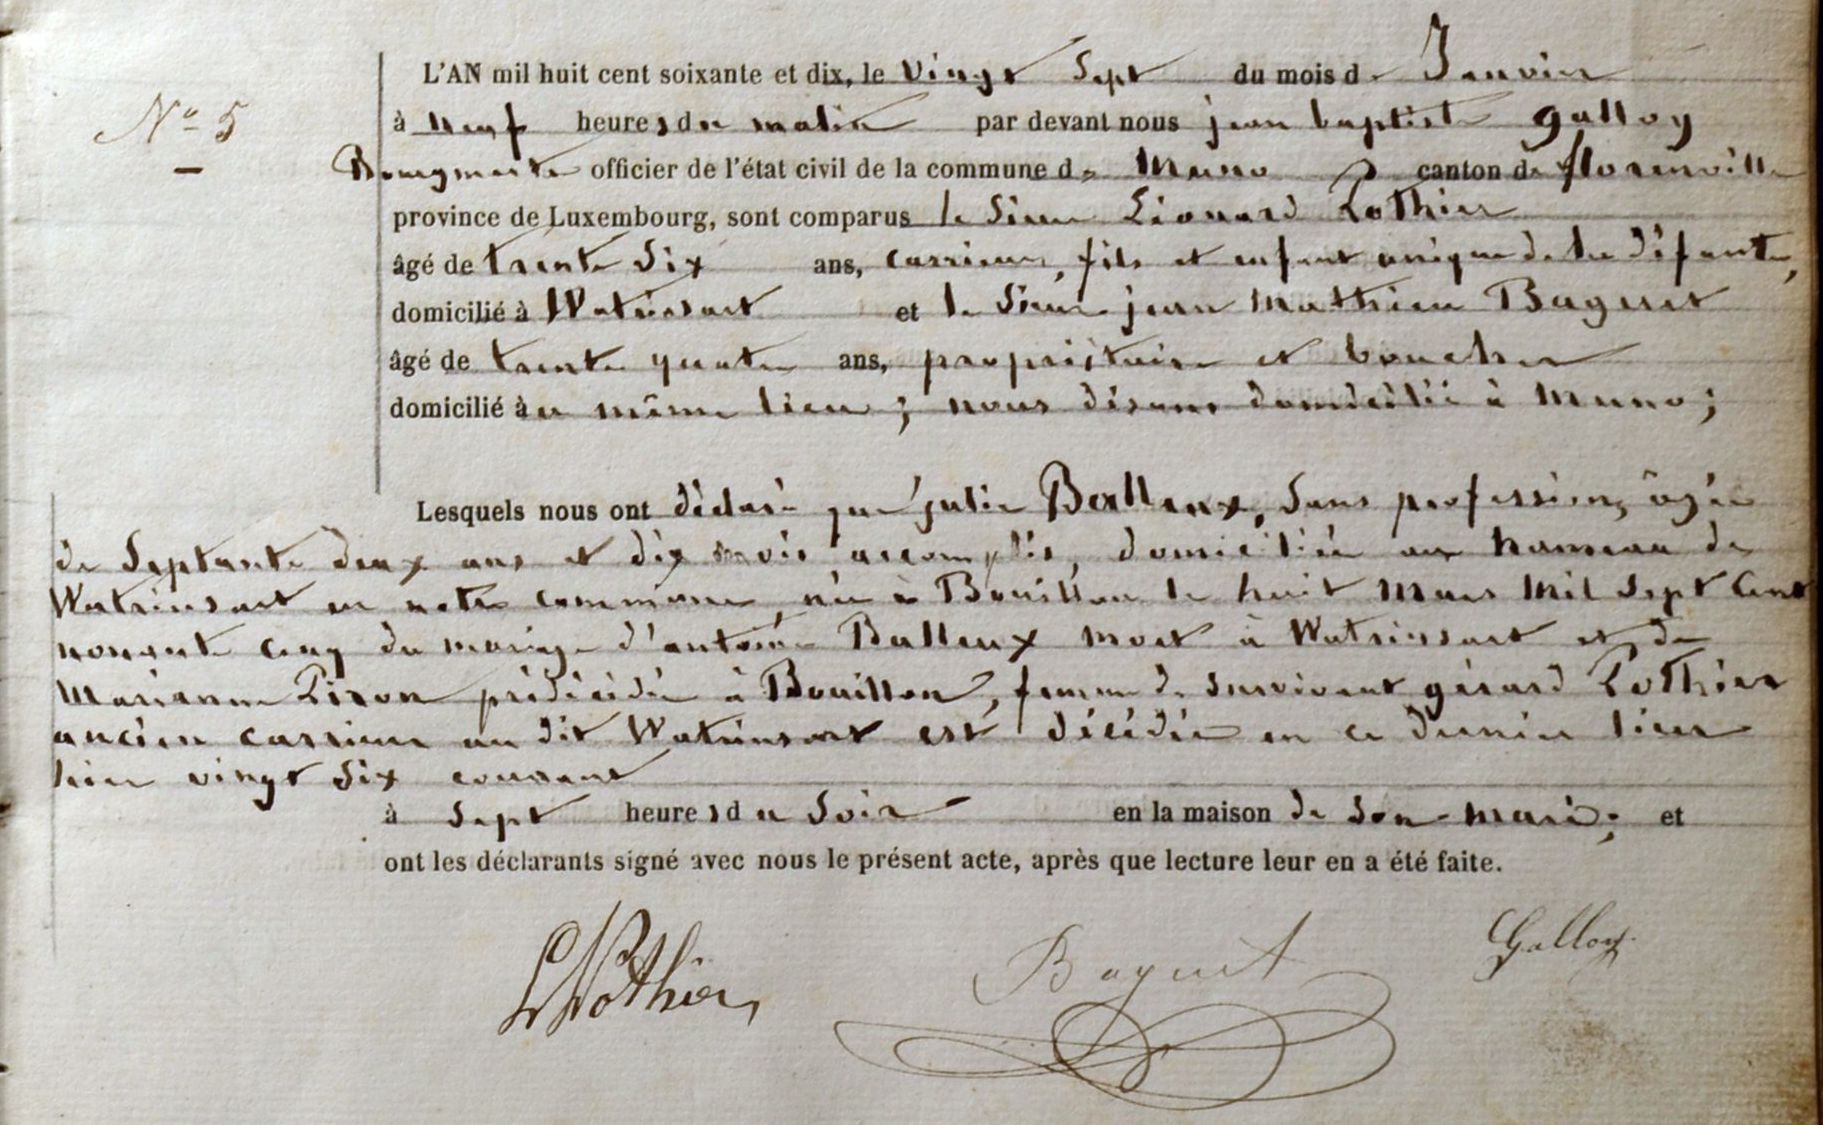 L'AN mil huit cent soixante et dix, le vingt Sept du mois de Janvier
N° 5
à neuf heures du matin par devant nous jean baptiste Galloy
Bourgmestre officier de l'état civil de la commune de Muno canton de florenville
province de Luxembourg, sont comparus le Sieur Léonard Pothier
âgé de trente Six ans, carrieur, fils et enfant unique de la défunte,
domicilié à Watrinsart et le Sieur jean Mathieu Baguet
âgé de trente quatre ans, propriétaire et boucher
domicilié au même lieu ; nous disons domicilié à Muno ;
Lesquels nous ont déclaré que julie Balleux, Sans profession, âgée
de Septante deux ans et dix mois accomplis, domiciliée au hameau de
Watrinsart en notre commune, née à Bouillon le huit Mars Mil Sept Cent
nonante cinq du mariage d'antoine Balleux mort à Watrinsart et de
Marianne Piron prédécédée à Bouillon, femme de survivant gérard Pothier
ancien carrieur au dit Watrinsart est décédée en ce dernier lieu
hier vingt Six courant
à Sept heures du Soir en la maison de Son mari ; et
ont les déclarants signé avec nous le présent acte, après que lecture leur en a été faite.
L Pothier Baguet Galloy